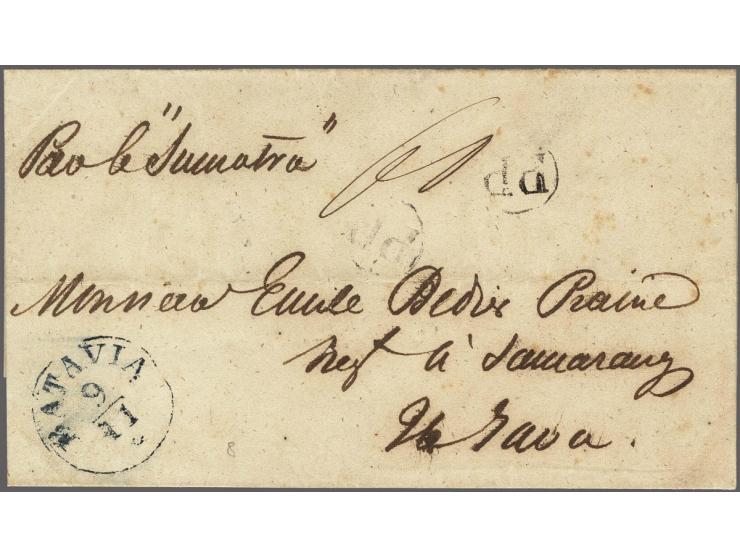 Par le "Sumatra"
PD
PD
Monsieur Emile Bedier Prairie
Negt à Samarang
Java.
BATAVIA
9/11
8